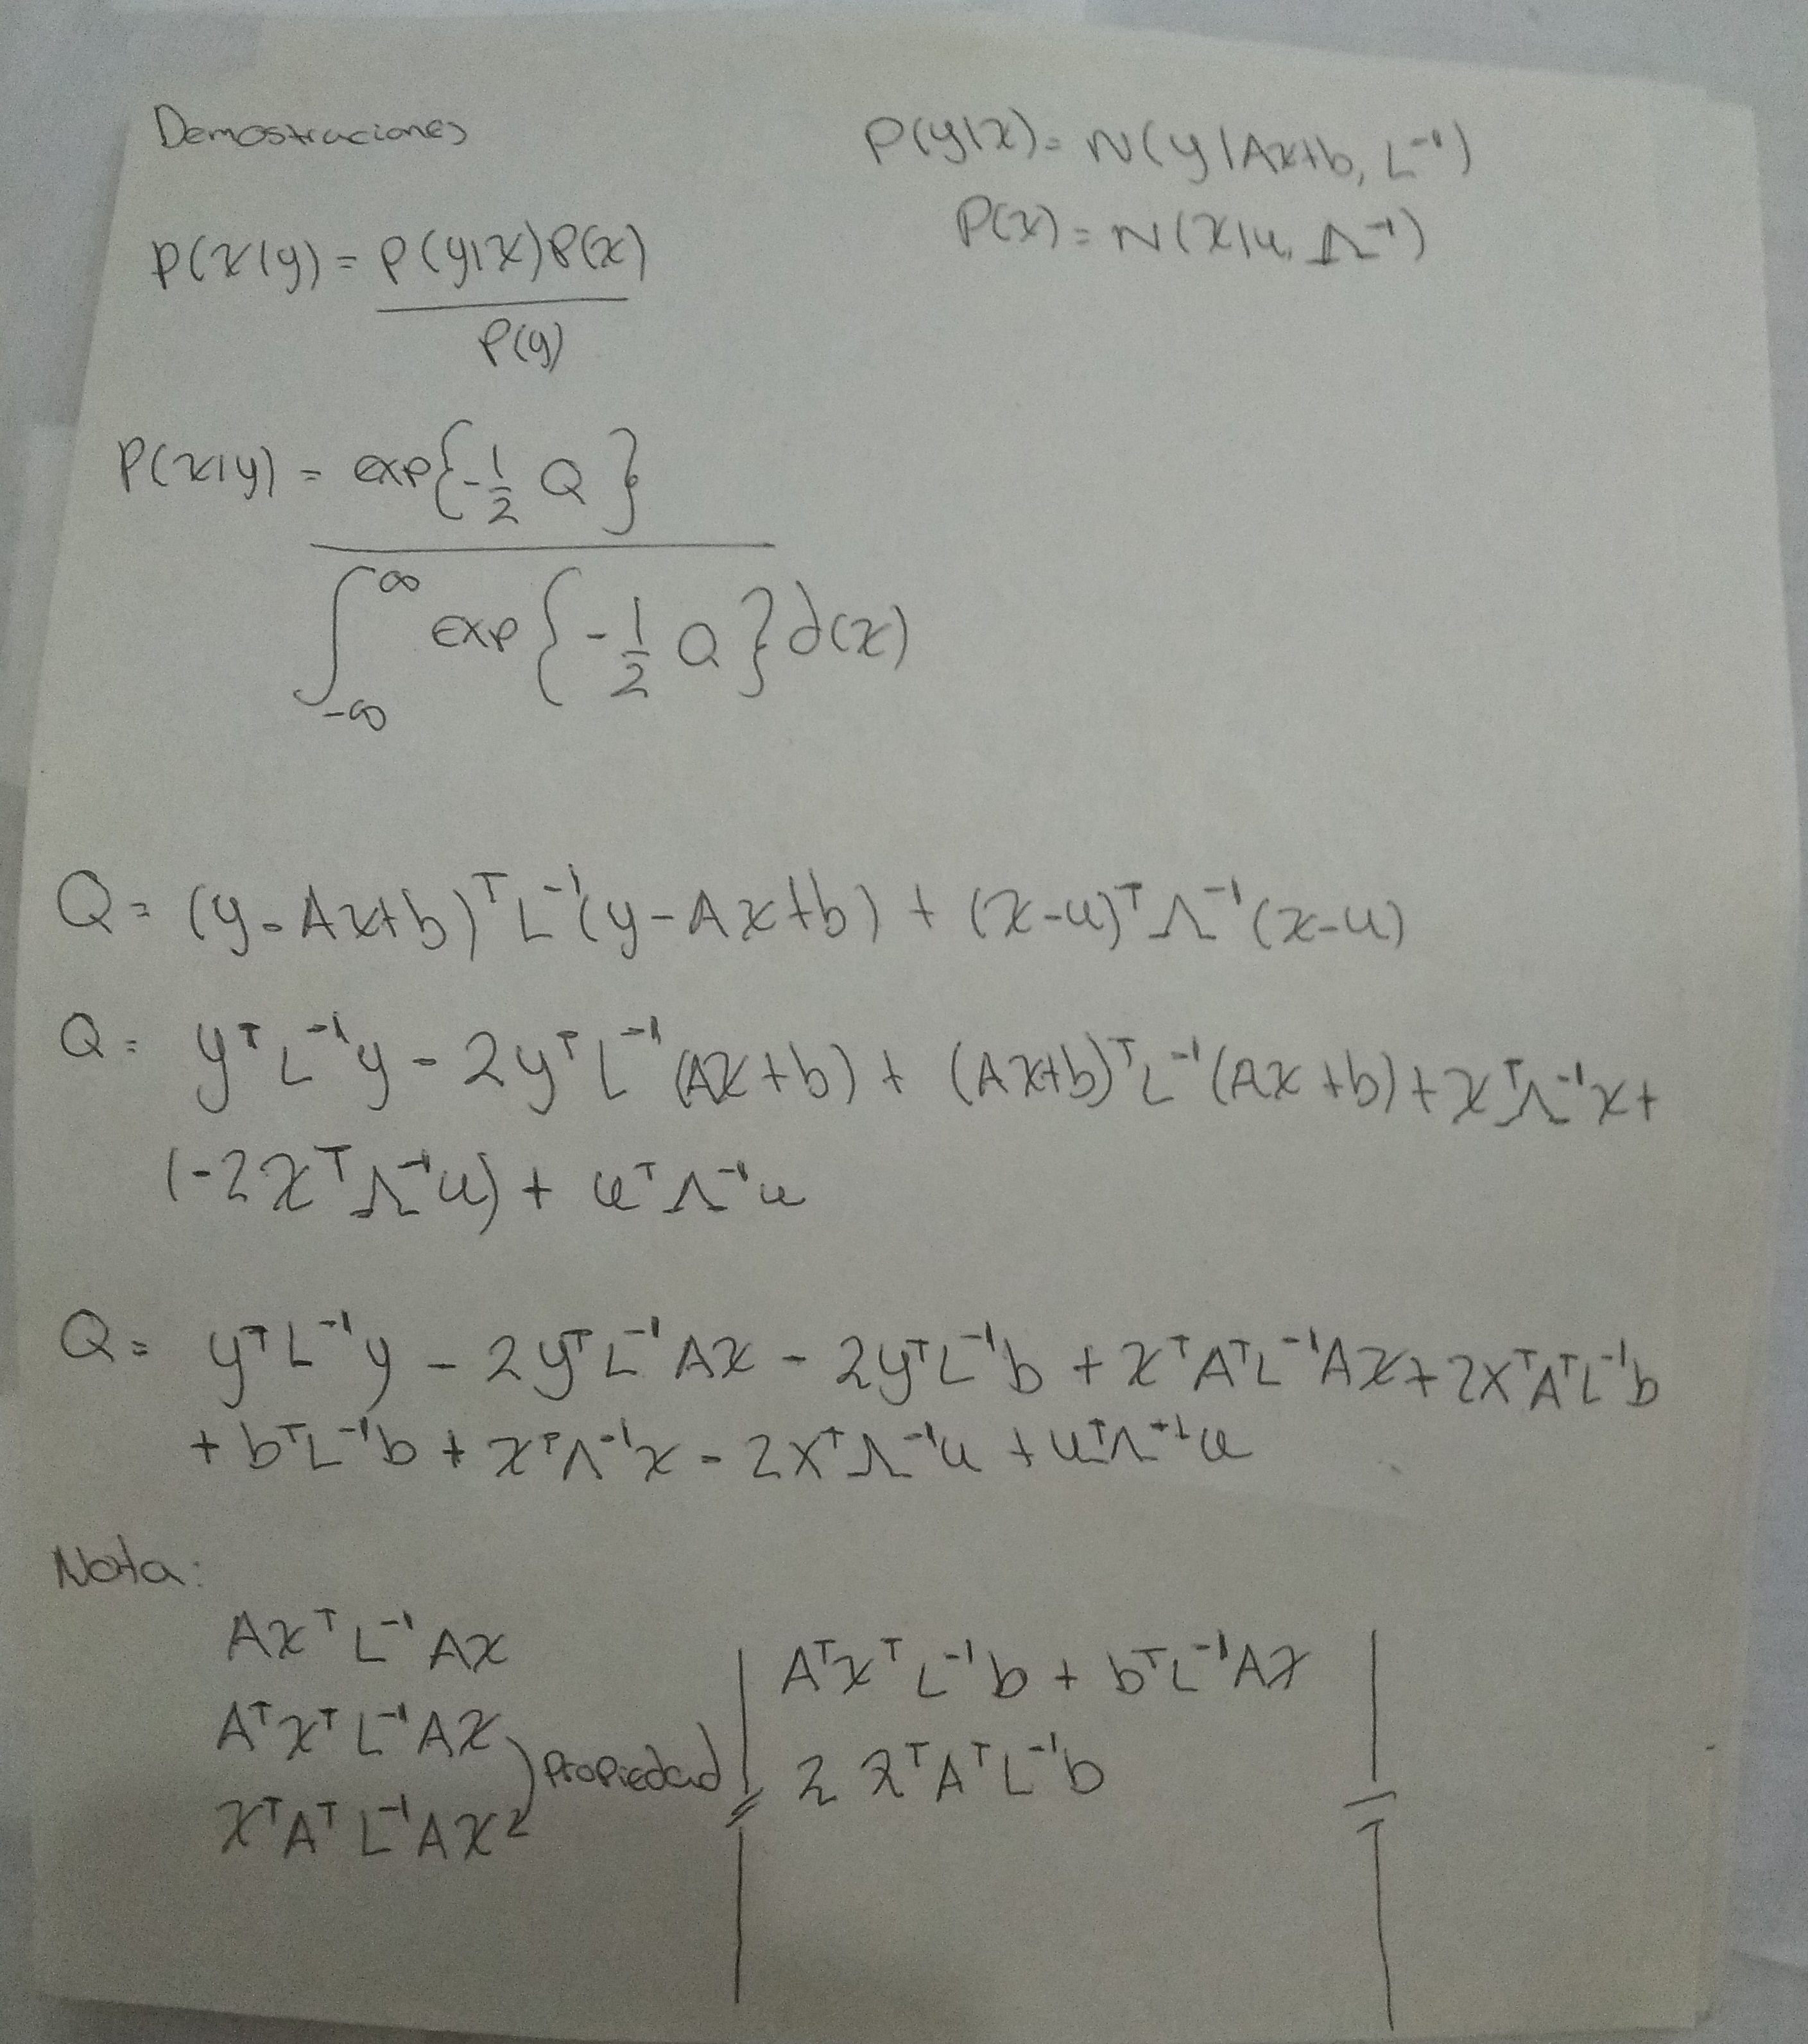 Demostraciones
P(y|x) = N(y|Ax+b, L⁻¹)
P(x) = N(x|u, Λ⁻¹)
P(x|y) = P(y|x)P(x)
P(y)
P(x|y) = exp{-1/2 Q}
∫_{-∞}^{∞} exp{-1/2 Q}d(x)
Q = (y-Ax+b)ᵀL⁻¹(y-Ax+b) + (x-u)ᵀΛ⁻¹(x-u)
Q = yᵀL⁻¹y - 2yᵀL⁻¹(Ax+b) + (Ax+b)ᵀL⁻¹(Ax+b) + xᵀΛ⁻¹x +
(-2xᵀΛ⁻¹u) + uᵀΛ⁻¹u
Q = yᵀL⁻¹y - 2yᵀL⁻¹Ax - 2yᵀL⁻¹b + xᵀAᵀL⁻¹Ax + 2xᵀAᵀL⁻¹b
+ bᵀL⁻¹b + xᵀΛ⁻¹x - 2xᵀΛ⁻¹u + uᵀΛ⁻¹u
Nota:
AxᵀL⁻¹Ax
AᵀxᵀL⁻¹Ax
xᵀAᵀL⁻¹Ax
Propiedad
AᵀxᵀL⁻¹b + bᵀL⁻¹Ax
2xᵀAᵀL⁻¹b